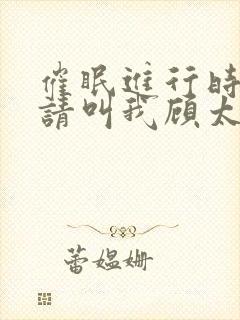 催眠進行時
請叫我顾太
蕾媪姗